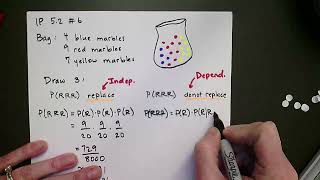 IP 5.2 #6
Bag: 4 blue marbles
9 red marbles
7 yellow marbles
Draw 3:
Indep.
Depend.
P(RRR) replace
P(RRR) do not replace
P(RRR) = P(R) · P(R) · P(R)
= 9/20 · 9/20 · 9/20
= 729/8000
P(RRR) = P(R) · P(R|R
Sharpie